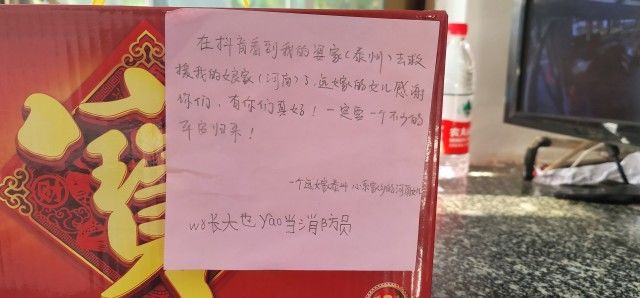 在抖音看到我的婆家(泰州)去救
援我的娘家(河南)了,远嫁的女儿感谢
你们,有你们真好!一定要一个不少的
平安归来!
一个远嫁泰州 心系家乡的河南女儿
wo长大也yao当消防员
农夫山